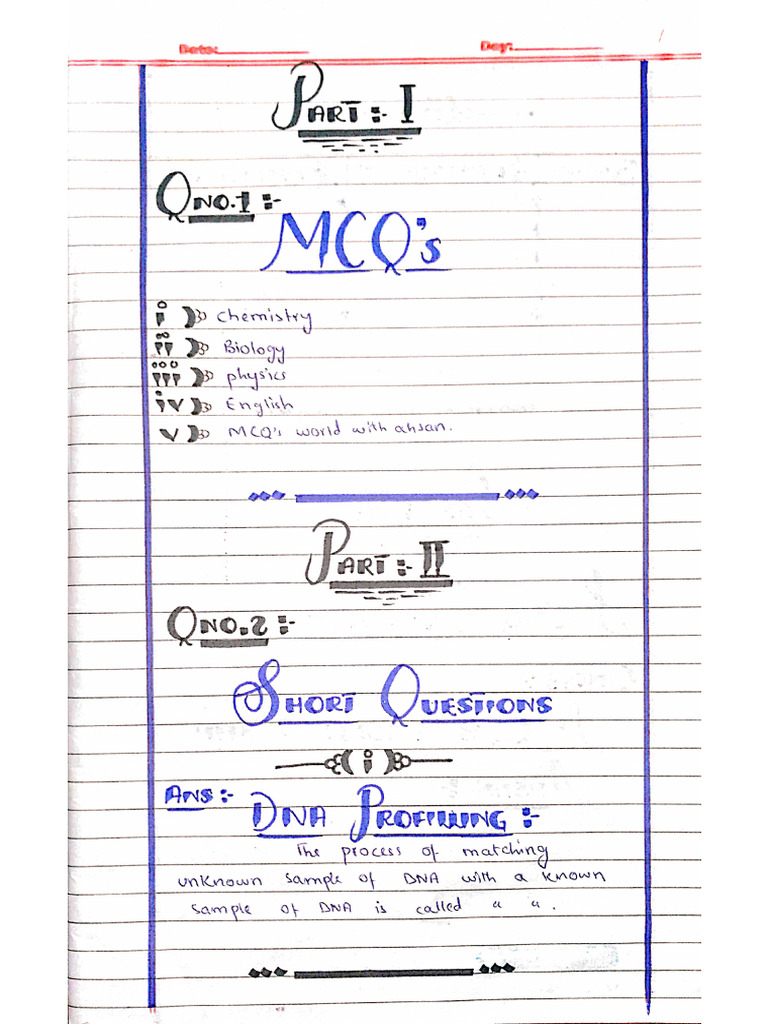 Date: Day:
PART:- I
QNO.1:-
MCQ's
i) Chemistry
ii) Biology
iii) physics
iv) English
v) MCQ's world with ahsan.
PART:- II
QNO.2:-
SHORT QUESTIONS
(i)
ANS:-
DNA PROFIWING:-
The process of matching
unknown sample of DNA with a known
sample of DNA is called " ".